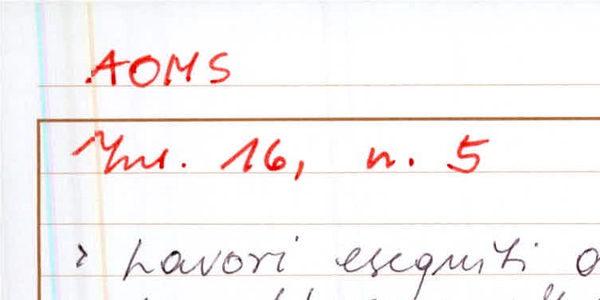 AOMS
Inv. 16, n. 5
> Lavori eseguiti